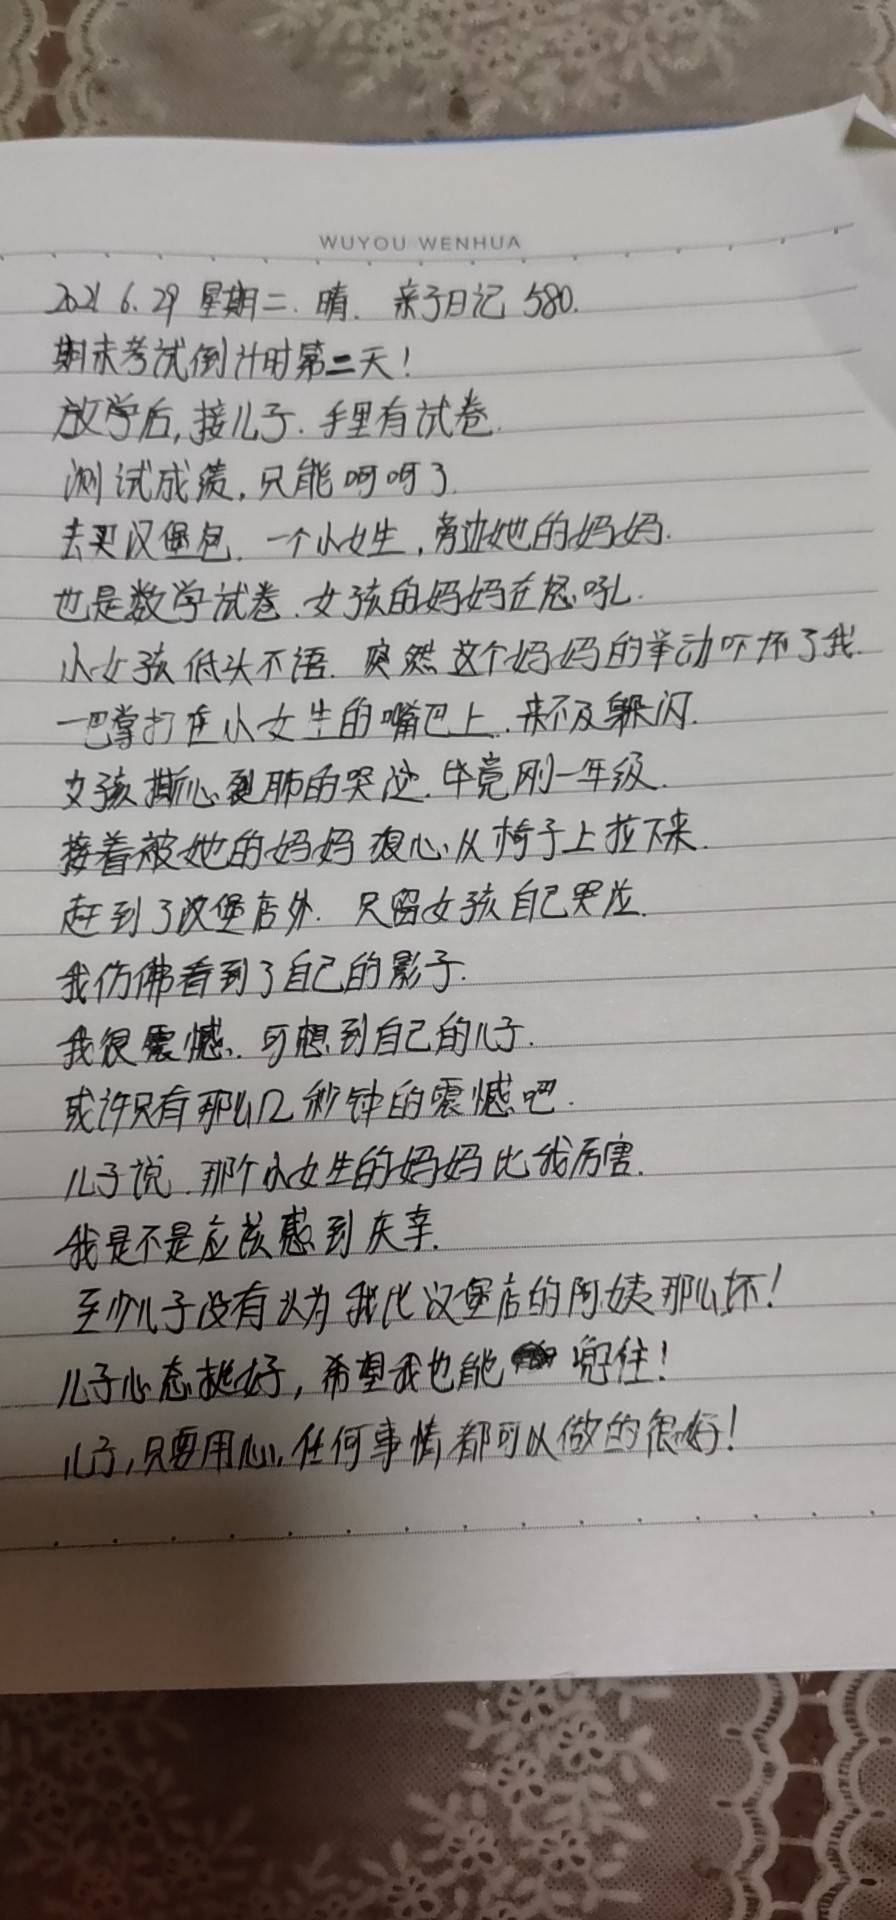 WUYOU WENHUA
2021 6.29 星期二. 晴. 亲子日记 580.
期末考试倒计时第二天！
放学后,接儿子.手里有试卷.
测试成绩,只能呵呵了.
去买汉堡包. 一个小女生,旁边她的妈妈.
也是数学试卷.女孩的妈妈在怒吼.
小女孩低头不语.突然这个妈妈的举动吓坏了我.
一巴掌打在小女生的嘴巴上.来不及躲闪.
女孩撕心裂肺的哭泣.毕竟刚一年级.
接着被她的妈妈狠心从椅子上拉下来.
赶到了汉堡店外. 只留女孩自己哭泣.
我仿佛看到了自己的影子.
我很震憾.可想到自己的儿子.
或许只有那么几秒钟的震憾吧.
儿子说.那个小女生的妈妈比我厉害.
我是不是应该感到庆幸.
至少儿子没有认为我比汉堡店的阿姨那么坏！
儿子心态挺好,希望我也能兜住！
儿子,只要用心,任何事情都可以做的很好！